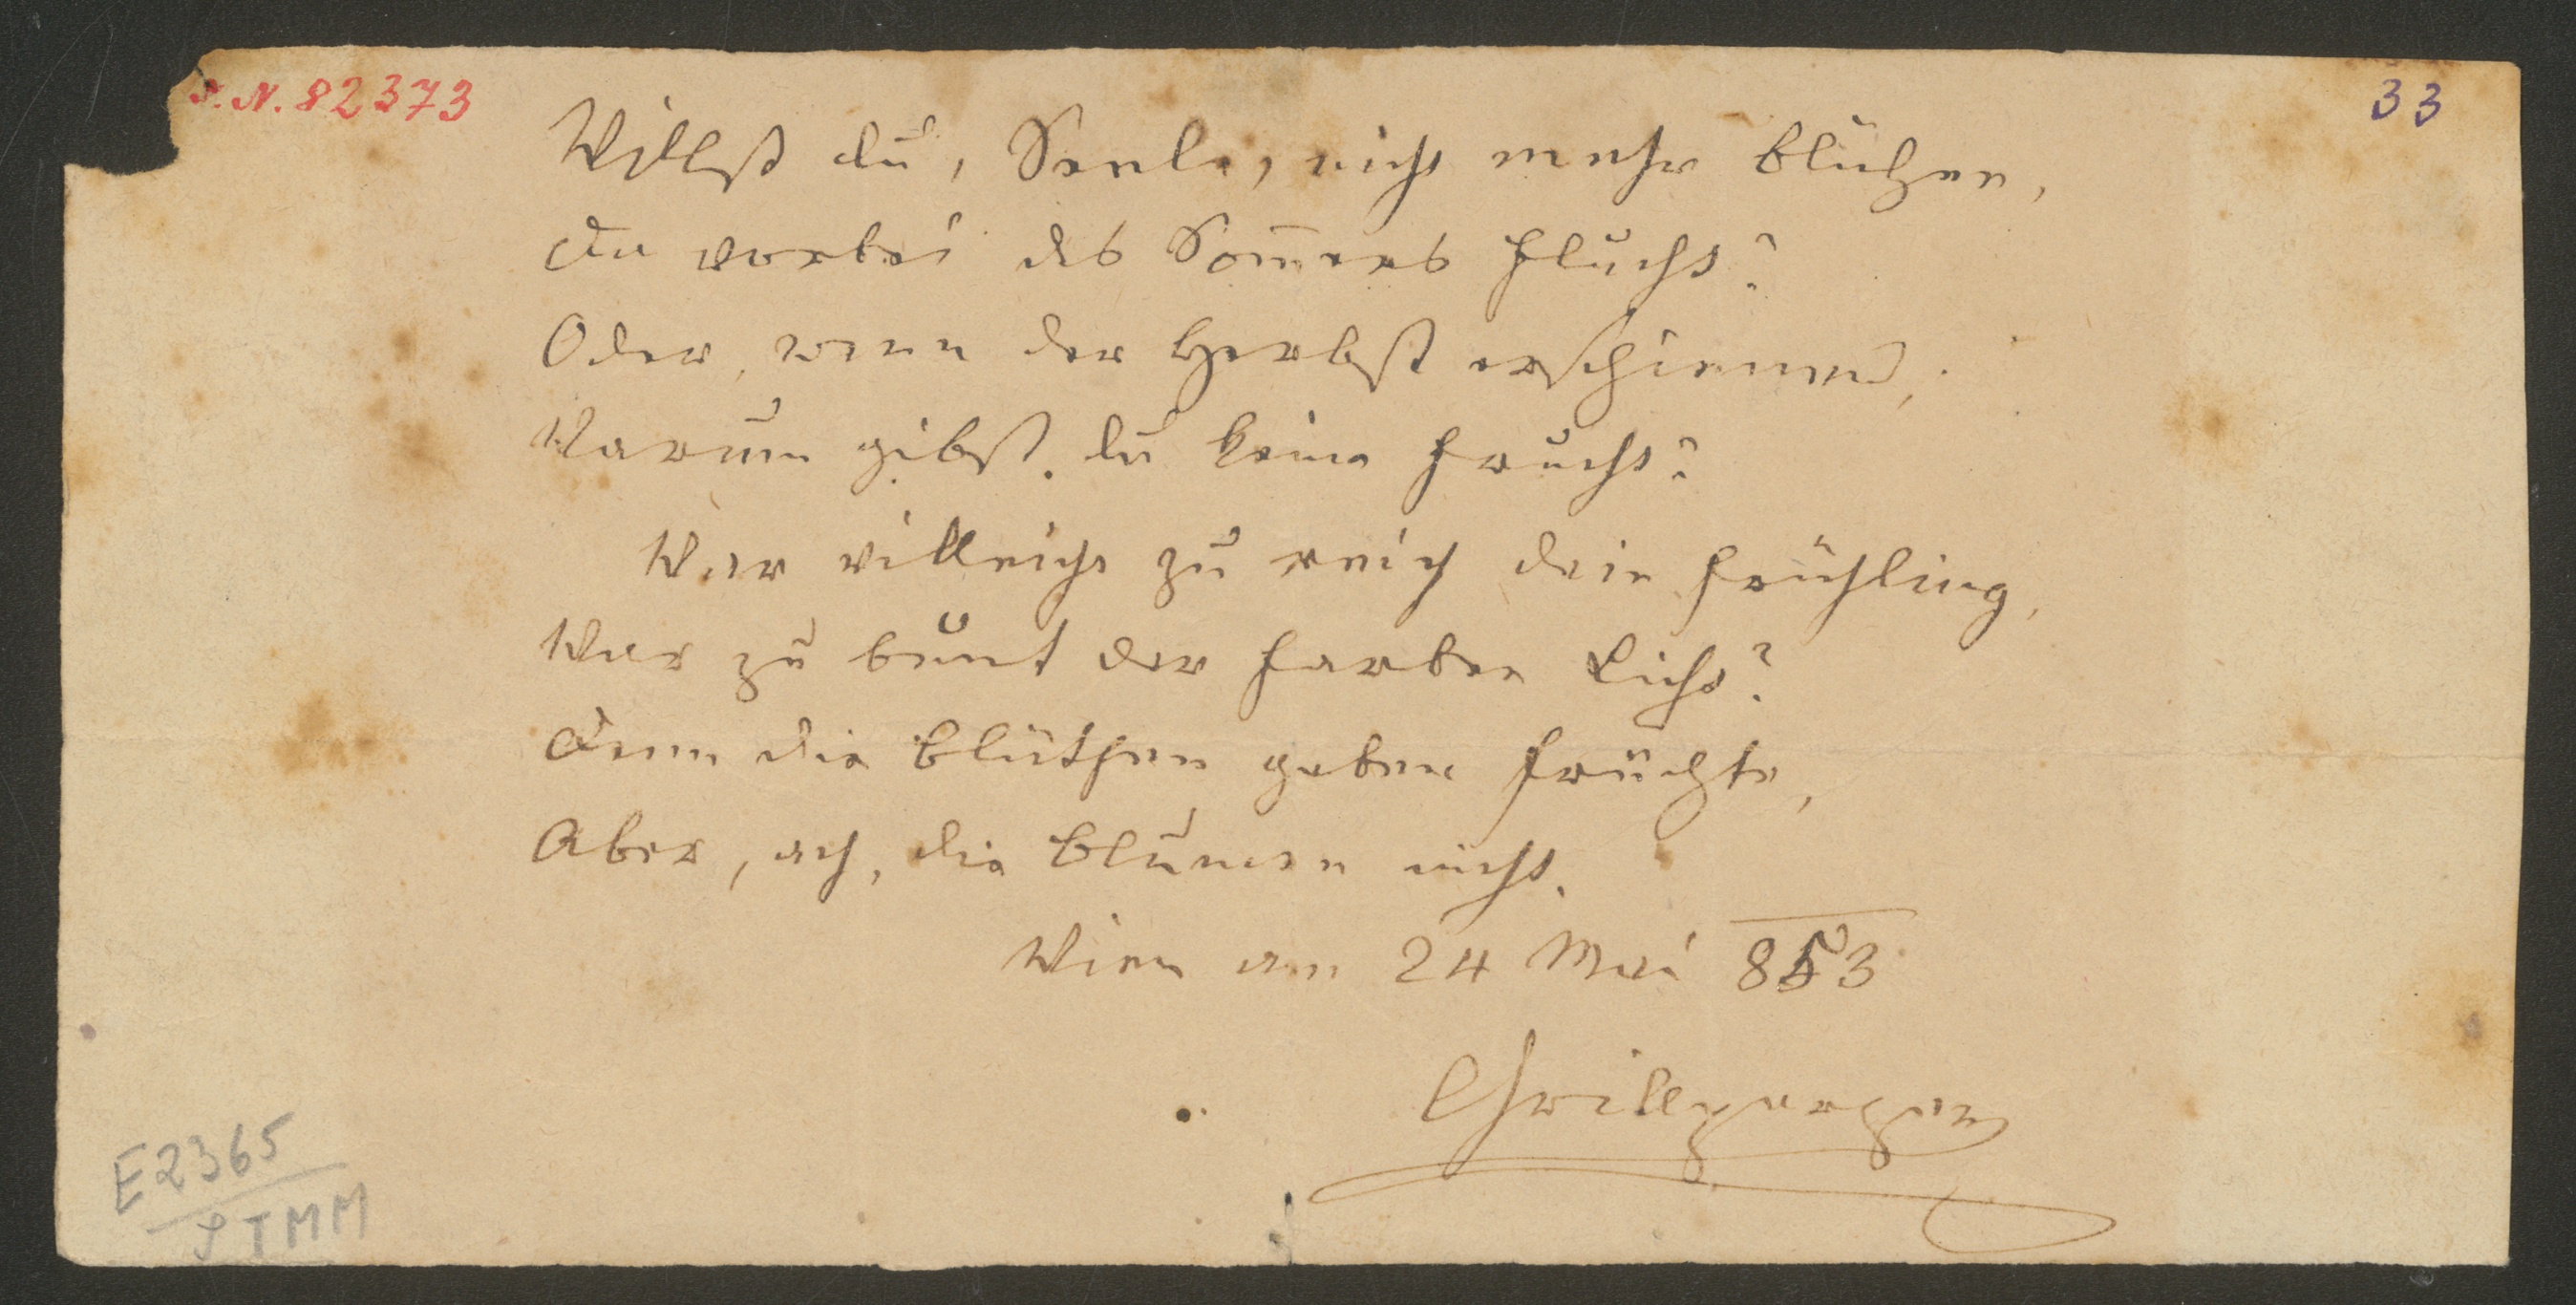 I. N. 82373
33
Willst du, Seele, nicht mehr blühen,
Da vorbei des Som̅ers Flucht?
Oder, wenn der Herbst erschienen,
Warum gibst du keine Frucht?
War villeicht zu reich dein Frühling,
War zu bunt der Farben Licht?
Denn die Blüthen geben Früchte,
Aber, ach, die Blumen nicht.
Wien am 24 Mai 853
Grillparzer
E2365